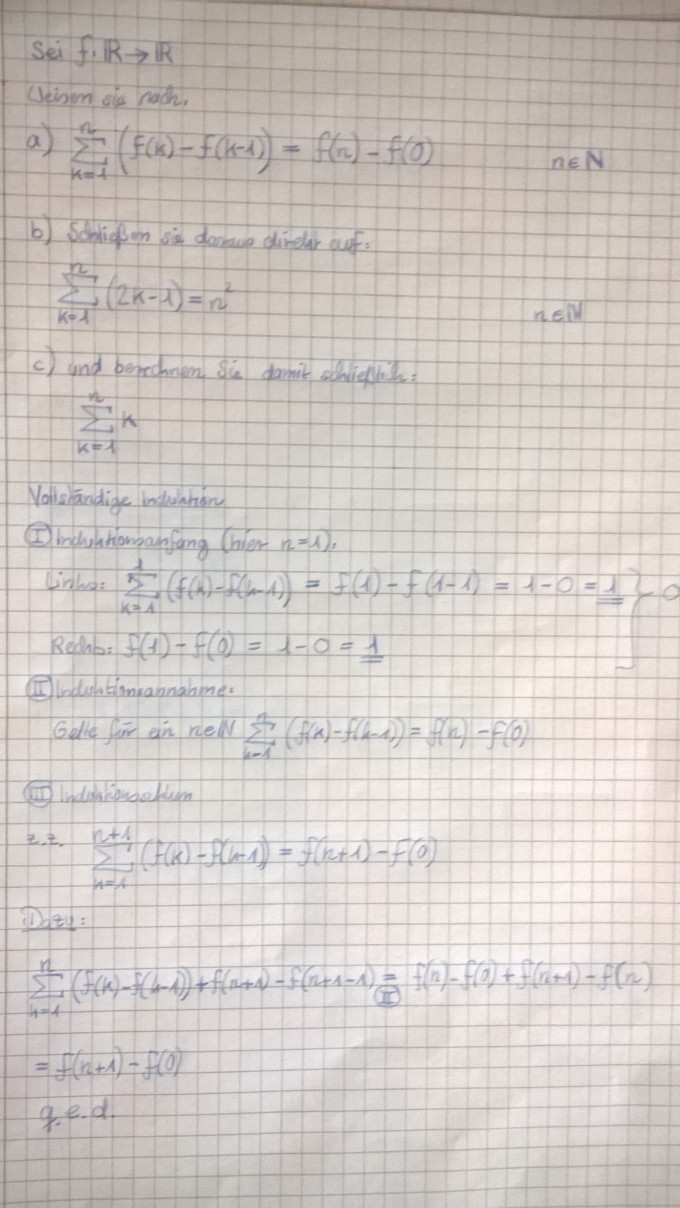 Sei f: ℝ → ℝ
Weisen sie nach.
a) ∑_{k=1}^{n} (f(k) - f(k-1)) = f(n) - f(0) n ∈ ℕ
b) Schließen sie daraus direkt auf:
∑_{k=1}^{n} (2k-1) = n² n ∈ ℕ
c) und berechnen Sie damit schließlich:
∑_{k=1}^{n} k
Vollständige Induktion
Ⓘ Induktionsanfang (hier n=1):
Links: ∑_{k=1}^{1} (f(k) - f(k-1)) = f(1) - f(1-1) = 1-0 = 1
Rechts: f(1) - f(0) = 1-0 = 1
Ⅱ Induktionsannahme:
Gelte für ein n∈ℕ ∑_{k=1}^{n} (f(k) - f(k-1)) = f(n) - f(0)
Ⅲ
z.z. ∑_{k=1}^{n+1} (f(k) - f(k-1)) = f(n+1) - f(0)
Dazu:
∑_{k=1}^{n} (f(k) - f(k-1)) + f(n+1) - f(n+1-1) =_{Ⅱ} f(n) - f(0) + f(n+1) - f(n)
= f(n+1) - f(0)
q.e.d.